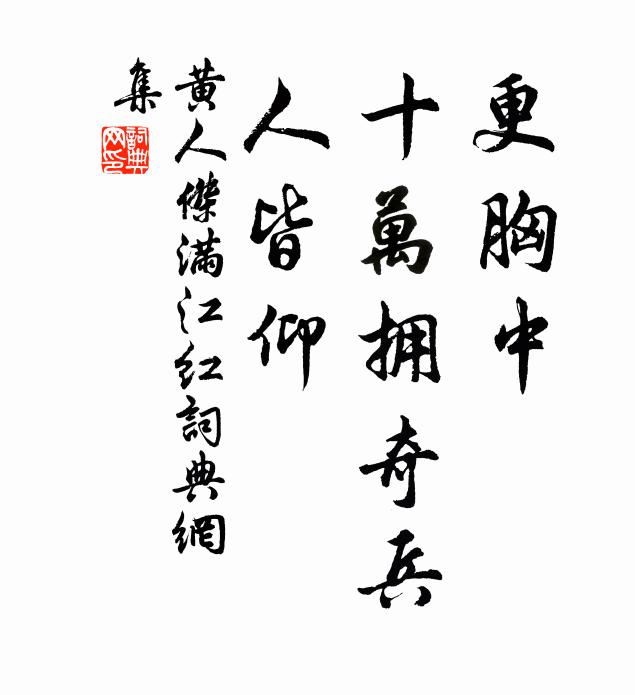 更胸中
十萬拥奇兵
人皆仰
黄人傑滿江红詞典網
集
詞典
网印